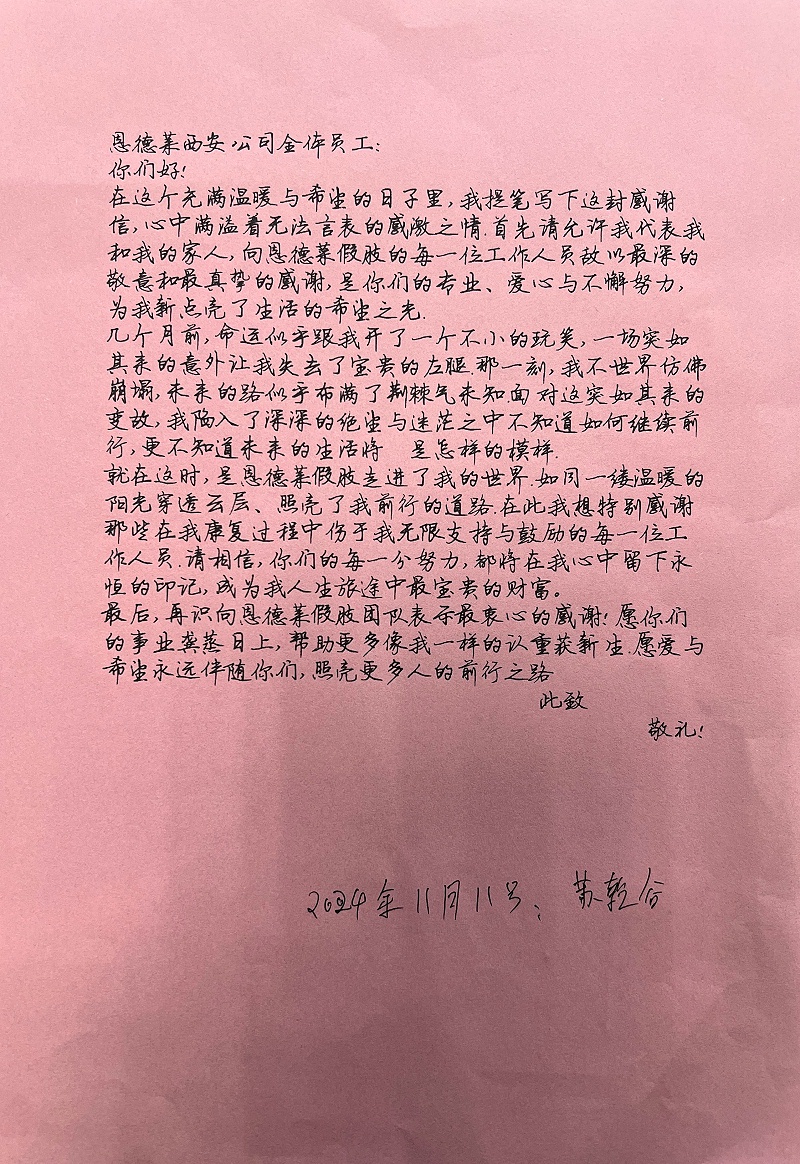 恩德莱西安公司全体员工:
你们好!
在这个充满温暖与希望的日子里,我提笔写下这封感谢
信,心中满溢着无法言表的感激之情.首先请允许我代表我
和我的家人,向恩德莱假肢的每一位工作人员致以最深的
敬意和最真挚的感谢,是你们的专业、爱心与不懈努力,
为我新点亮了生活的希望之光.
几个月前,命运似乎跟我开了一个不小的玩笑,一场突如
其来的意外让我失去了宝贵的左腿.那一刻,我不世界仿佛
崩塌,未来的路似乎布满了荆棘气未知面对这突如其来的
变故,我陷入了深深的绝望与迷茫之中不知道如何继续前
行,更不知道未来的生活将 是怎样的模样.
就在这时,是恩德莱假肢走进了我的世界.如同一缕温暖的
阳光穿透云层、照亮了我前行的道路.在此我想特别感谢
那些在我康复过程中伤于我无限支持与鼓励的每一位工
作人员.请相信,你们的每一分努力,都将在我心中留下永
恒的印记,成为我人生旅途中最宝贵的财富。
最后,再识向恩德莱假肢团队表示最衷心的感谢!愿你们
的事业蒸蒸日上,帮助更多像我一样的认重获新生.愿爱与
希望永远伴随你们,照亮更多人的前行之路
此致
敬礼!
2024年11月11号; 苏